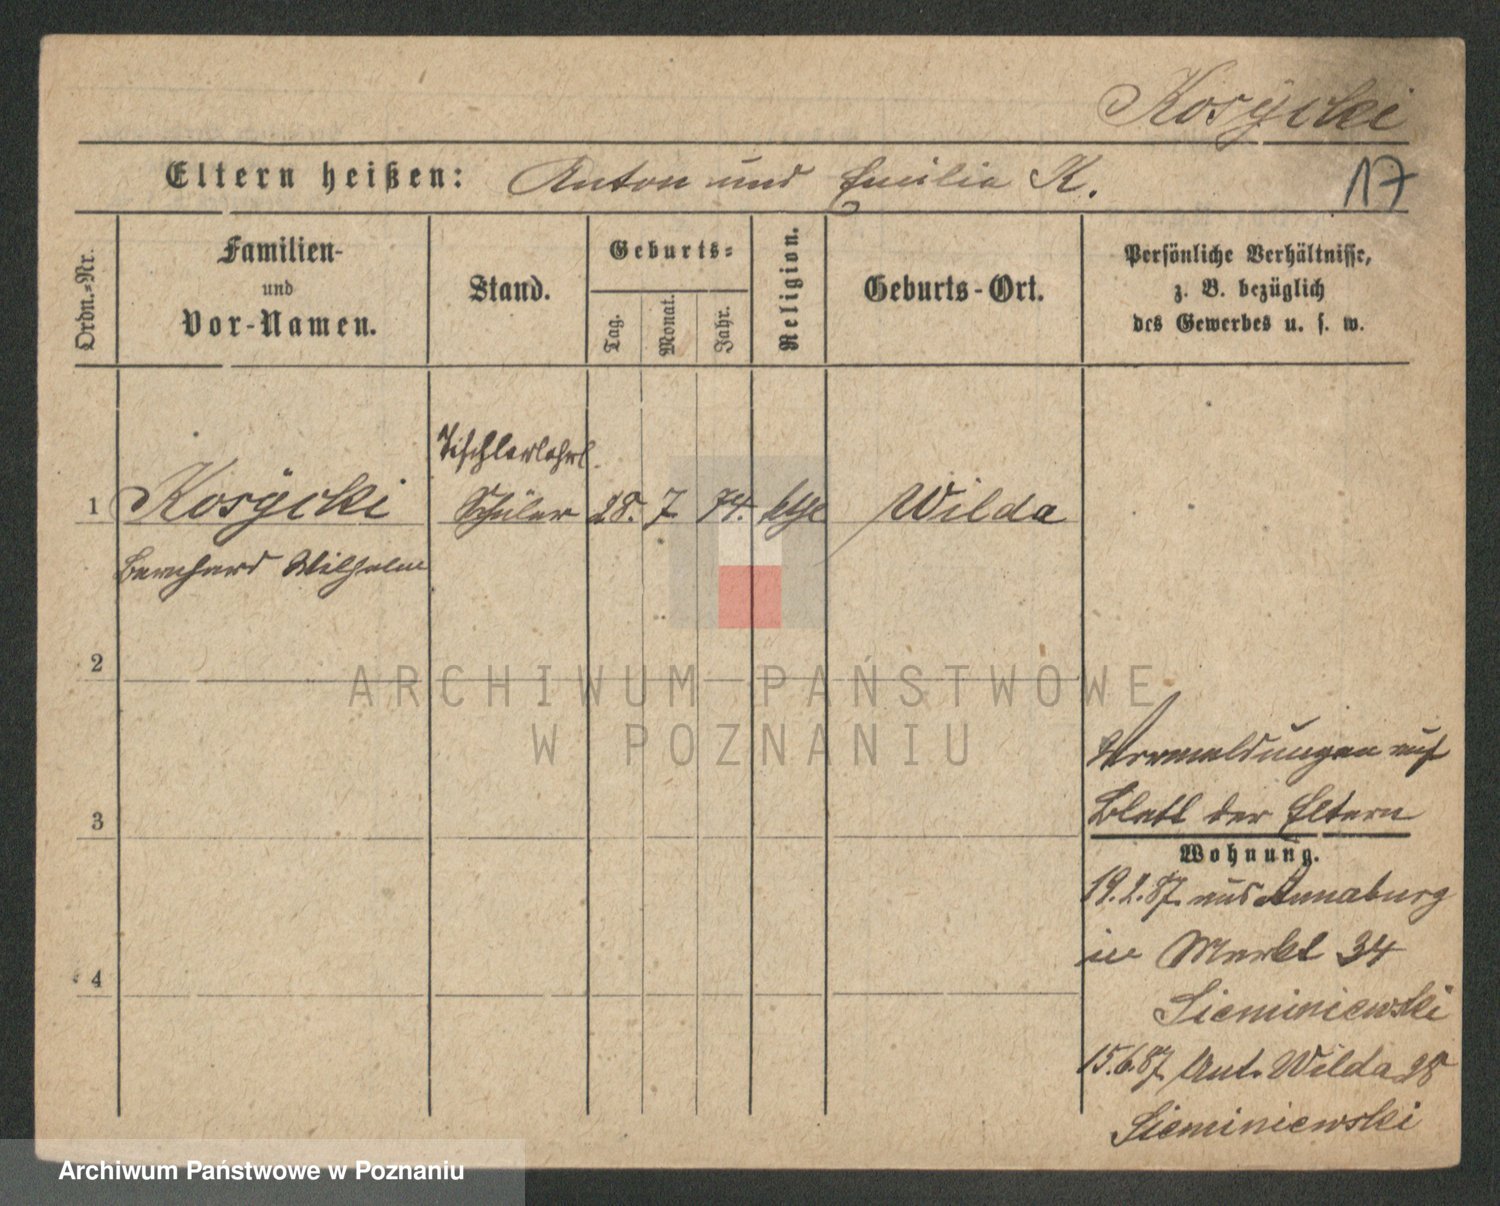 Kosÿcki
17
Eltern heißen: Anton und Emilia K.
Ordn.-Nr.
Familien-
und
Vor-Namen.
Stand.
Geburts-
Tag.
Monat.
Jahr.
Religion.
Geburts-Ort.
Persönliche Verhältnisse,
z. B. bezüglich
des Gewerbes u. s. w.
Tischlerlehrl.
1 Kosÿcki Schüler 28. 7. 74. Wilda
Bernhard Wilhelm
2
ARCHIWUM PAŃSTWOWE
W POZNANIU
auf
3 Blatt der Eltern
Wohnung.
19.2.87. aus Annaburg
in Markt 34
4
Sieminiewski
15.6.87. Unt. Wilda 28
Sieminiewski
Archiwum Państwowe w Poznaniu